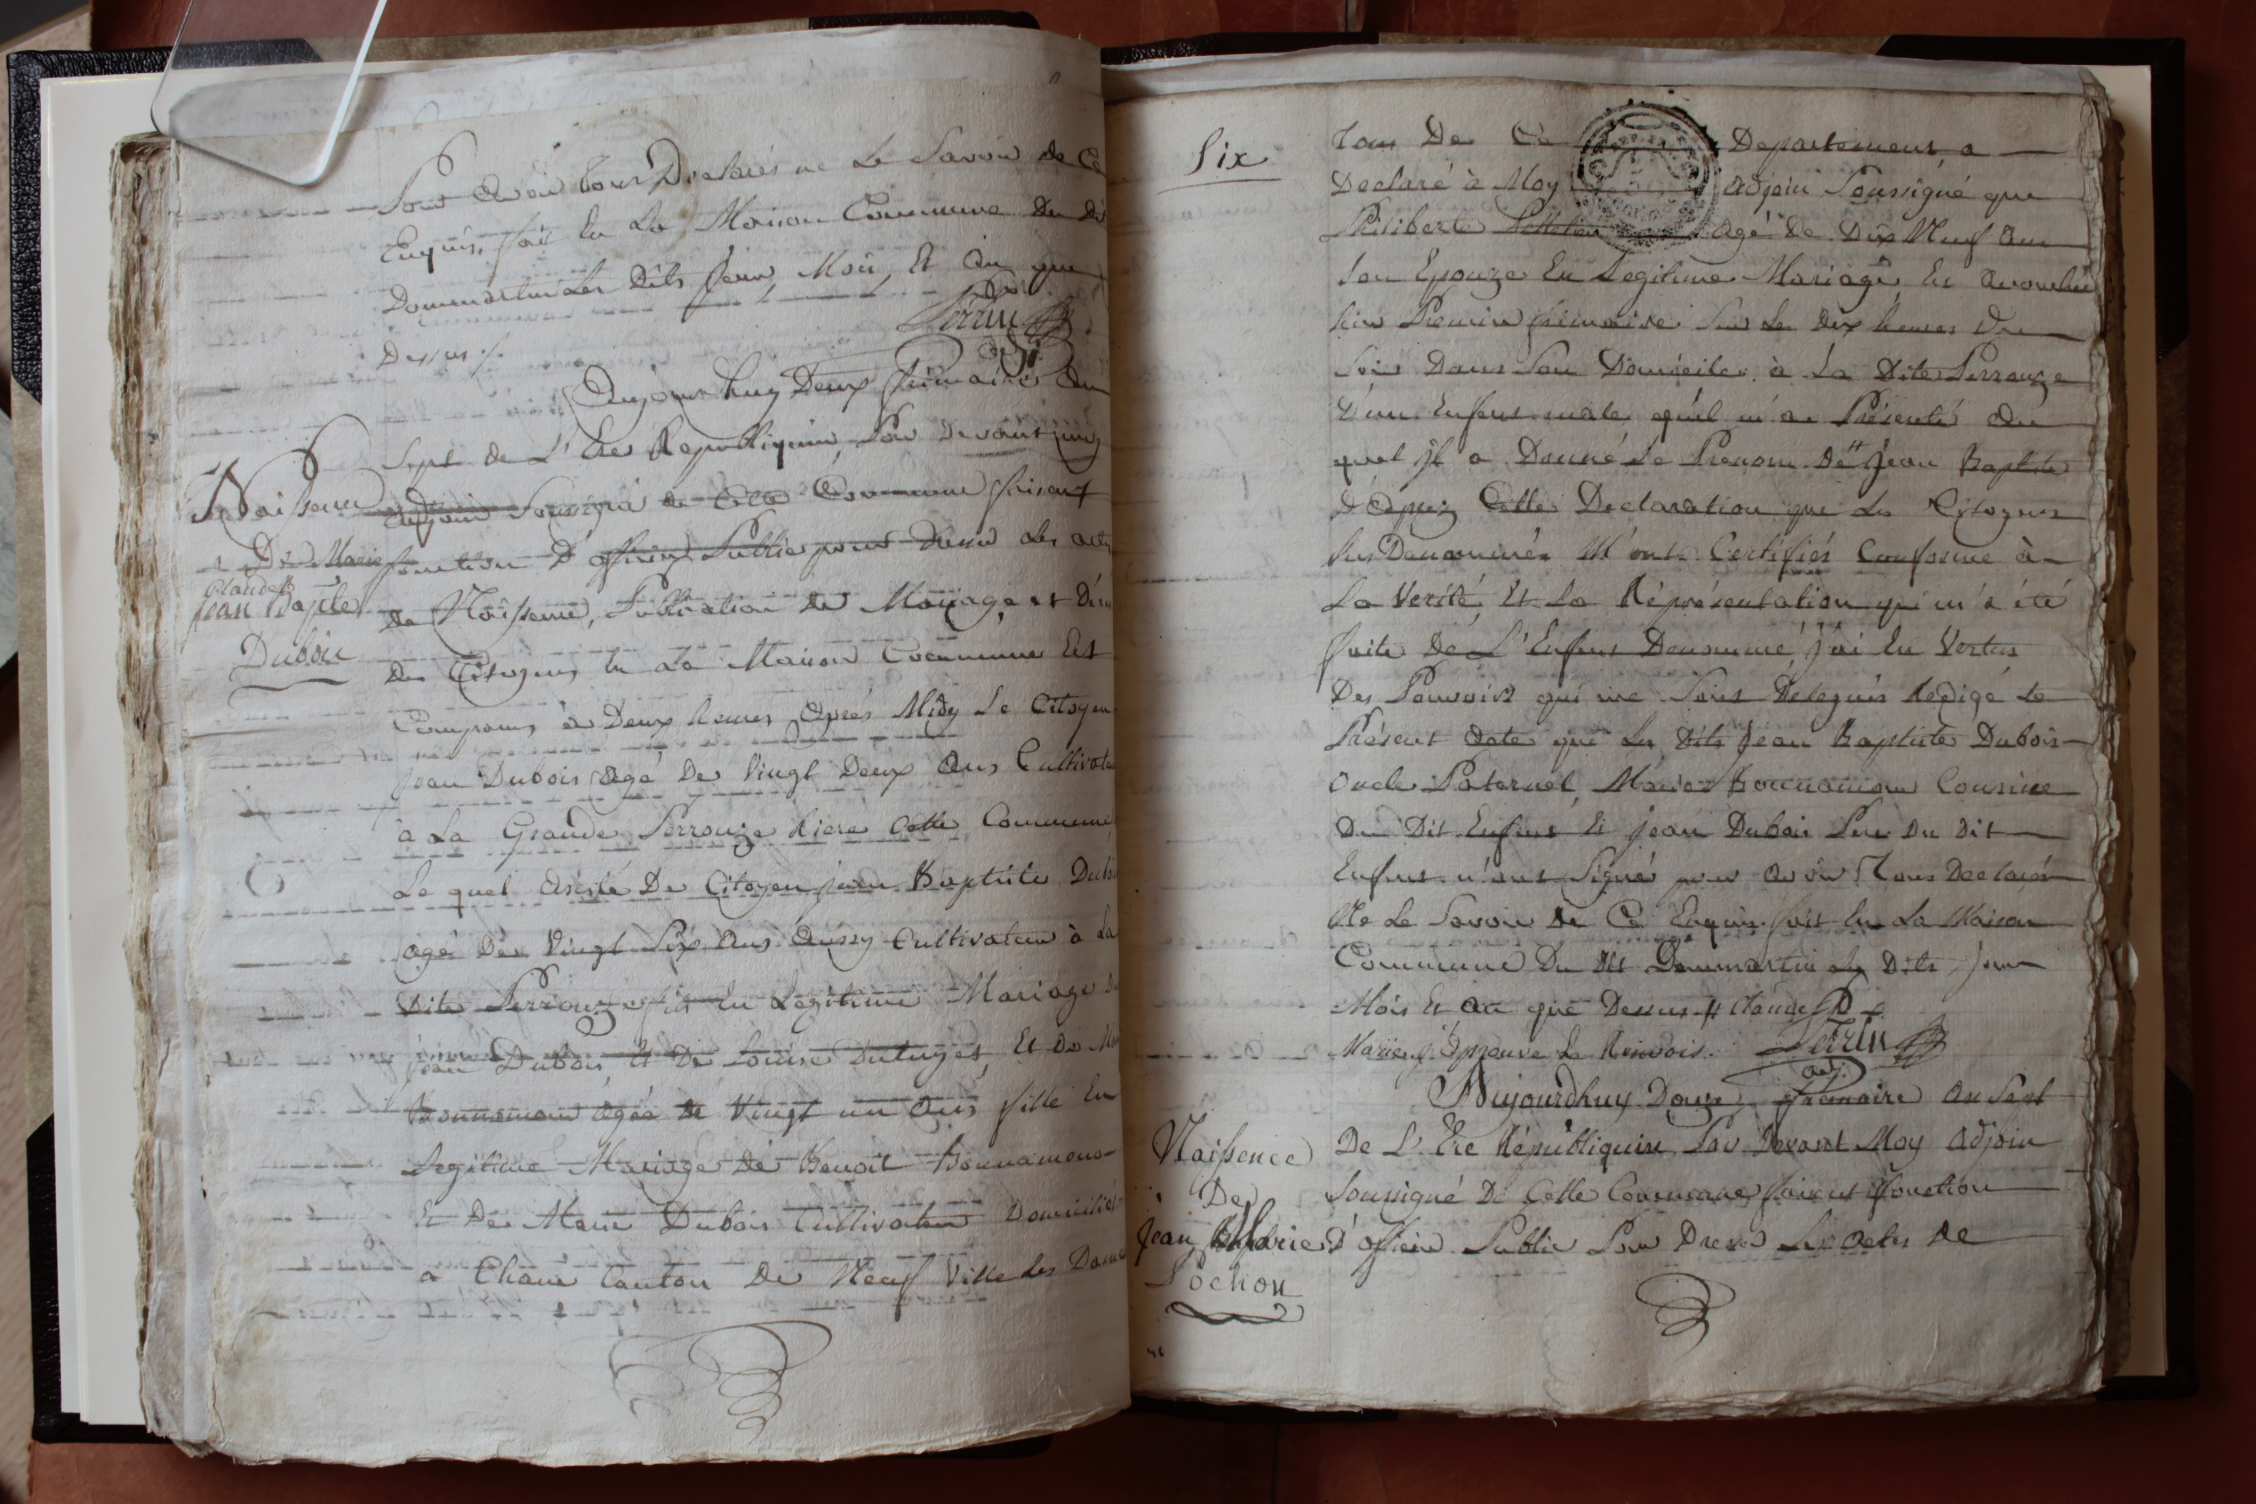 Pour avoir tous Declarés ne Le Savoir de Ce
Enquis, fait En La Maison Commune Du Dit
Dommartin Les Dits Jour, Mois, Et An que
Dessus ./.
Perrin
adj.
Aujourdhuy Deux frimaire an
Sept de L'Ere Republiquain, Par devant moy
Naissence
adjoin Soussigné de Cette Commune faisant
De Marie
fonction D'officier Public pour Dresser les actes
Claude
Jean Baptiste
de Naissence, Publication de Mariage, et Décé
Dubois
Des Citoyens En La Maison Commune Est
Comparus à Deux heures Aprés Midy Le Citoyen
Jean Dubois agé De Vingt Deux Ans Cultivateu
à La Grande Serrouze Riere Cette Commune
Le quel Assisté De Citoyen Jean Baptiste Dubois
agé De Vingt Six Ans Aussy Cultivateur à La
Dite Serrouze fils En Legitime Mariage De
Jean Dubois Et De Louise Et De
Bonnamour Agée de Vingt un Ans fille En
Legitime Mariage De Benoit Bonnamour
Et De Marie Dubois Cultivateur Domiciliés
à Chane Canton De Neuf Ville Les Dames
Six
Tous De Ce Departement, a
Declaré à Moy Adjoin Soussigné que
Philiberte Pelletier Agé De Dix Neuf Ans
Son Epouze En Legitime Mariage Est Accouchée
hier Premier frimaire Sur Les Dix heures Du
Soir Dans Son Domicile à La Dite Serrouze
D'un Enfent male qu'il m'a Présenté Au
quel Jl a Donné Le Prenom De # Jean Baptiste
D'Aprez Cette Declaration que Les Citoyens
Sus Denommés M'ont Certifiés Conforme à
La Verité, Et La Réprésentation qui m'a été
faite De L'Enfent Denommé, J'ai En Vertus
Des Pouvoirs qui me Sont Delegués Redigé Le
Présent Acte que Les Dits Jean Baptiste Dubois
Oncle Paternel, Marie Bonnamour Cousine
Du Dit Enfent Et Jean Dubois Pere Du Dit
Enfent n'ont Signé pour avoir Tous Declarés
Ne Le Savoir De Ce Enquis fait En La Maison
Commune Du Dit Dommartin Les Dits Jour
Mois Et An que Dessus # Claude
Marie J'Aprouve Le Renvois. Perrin
adj.
Aujourdhuy Douze frimaire an Sept
Naissence
De L'Ere Républiquin Par Devant Moy Adjoin
De
Soussigné De Cette Commune faisent fonction
Jean Marie
D'officier Public Pour Dresser Les Actes De
Pochon